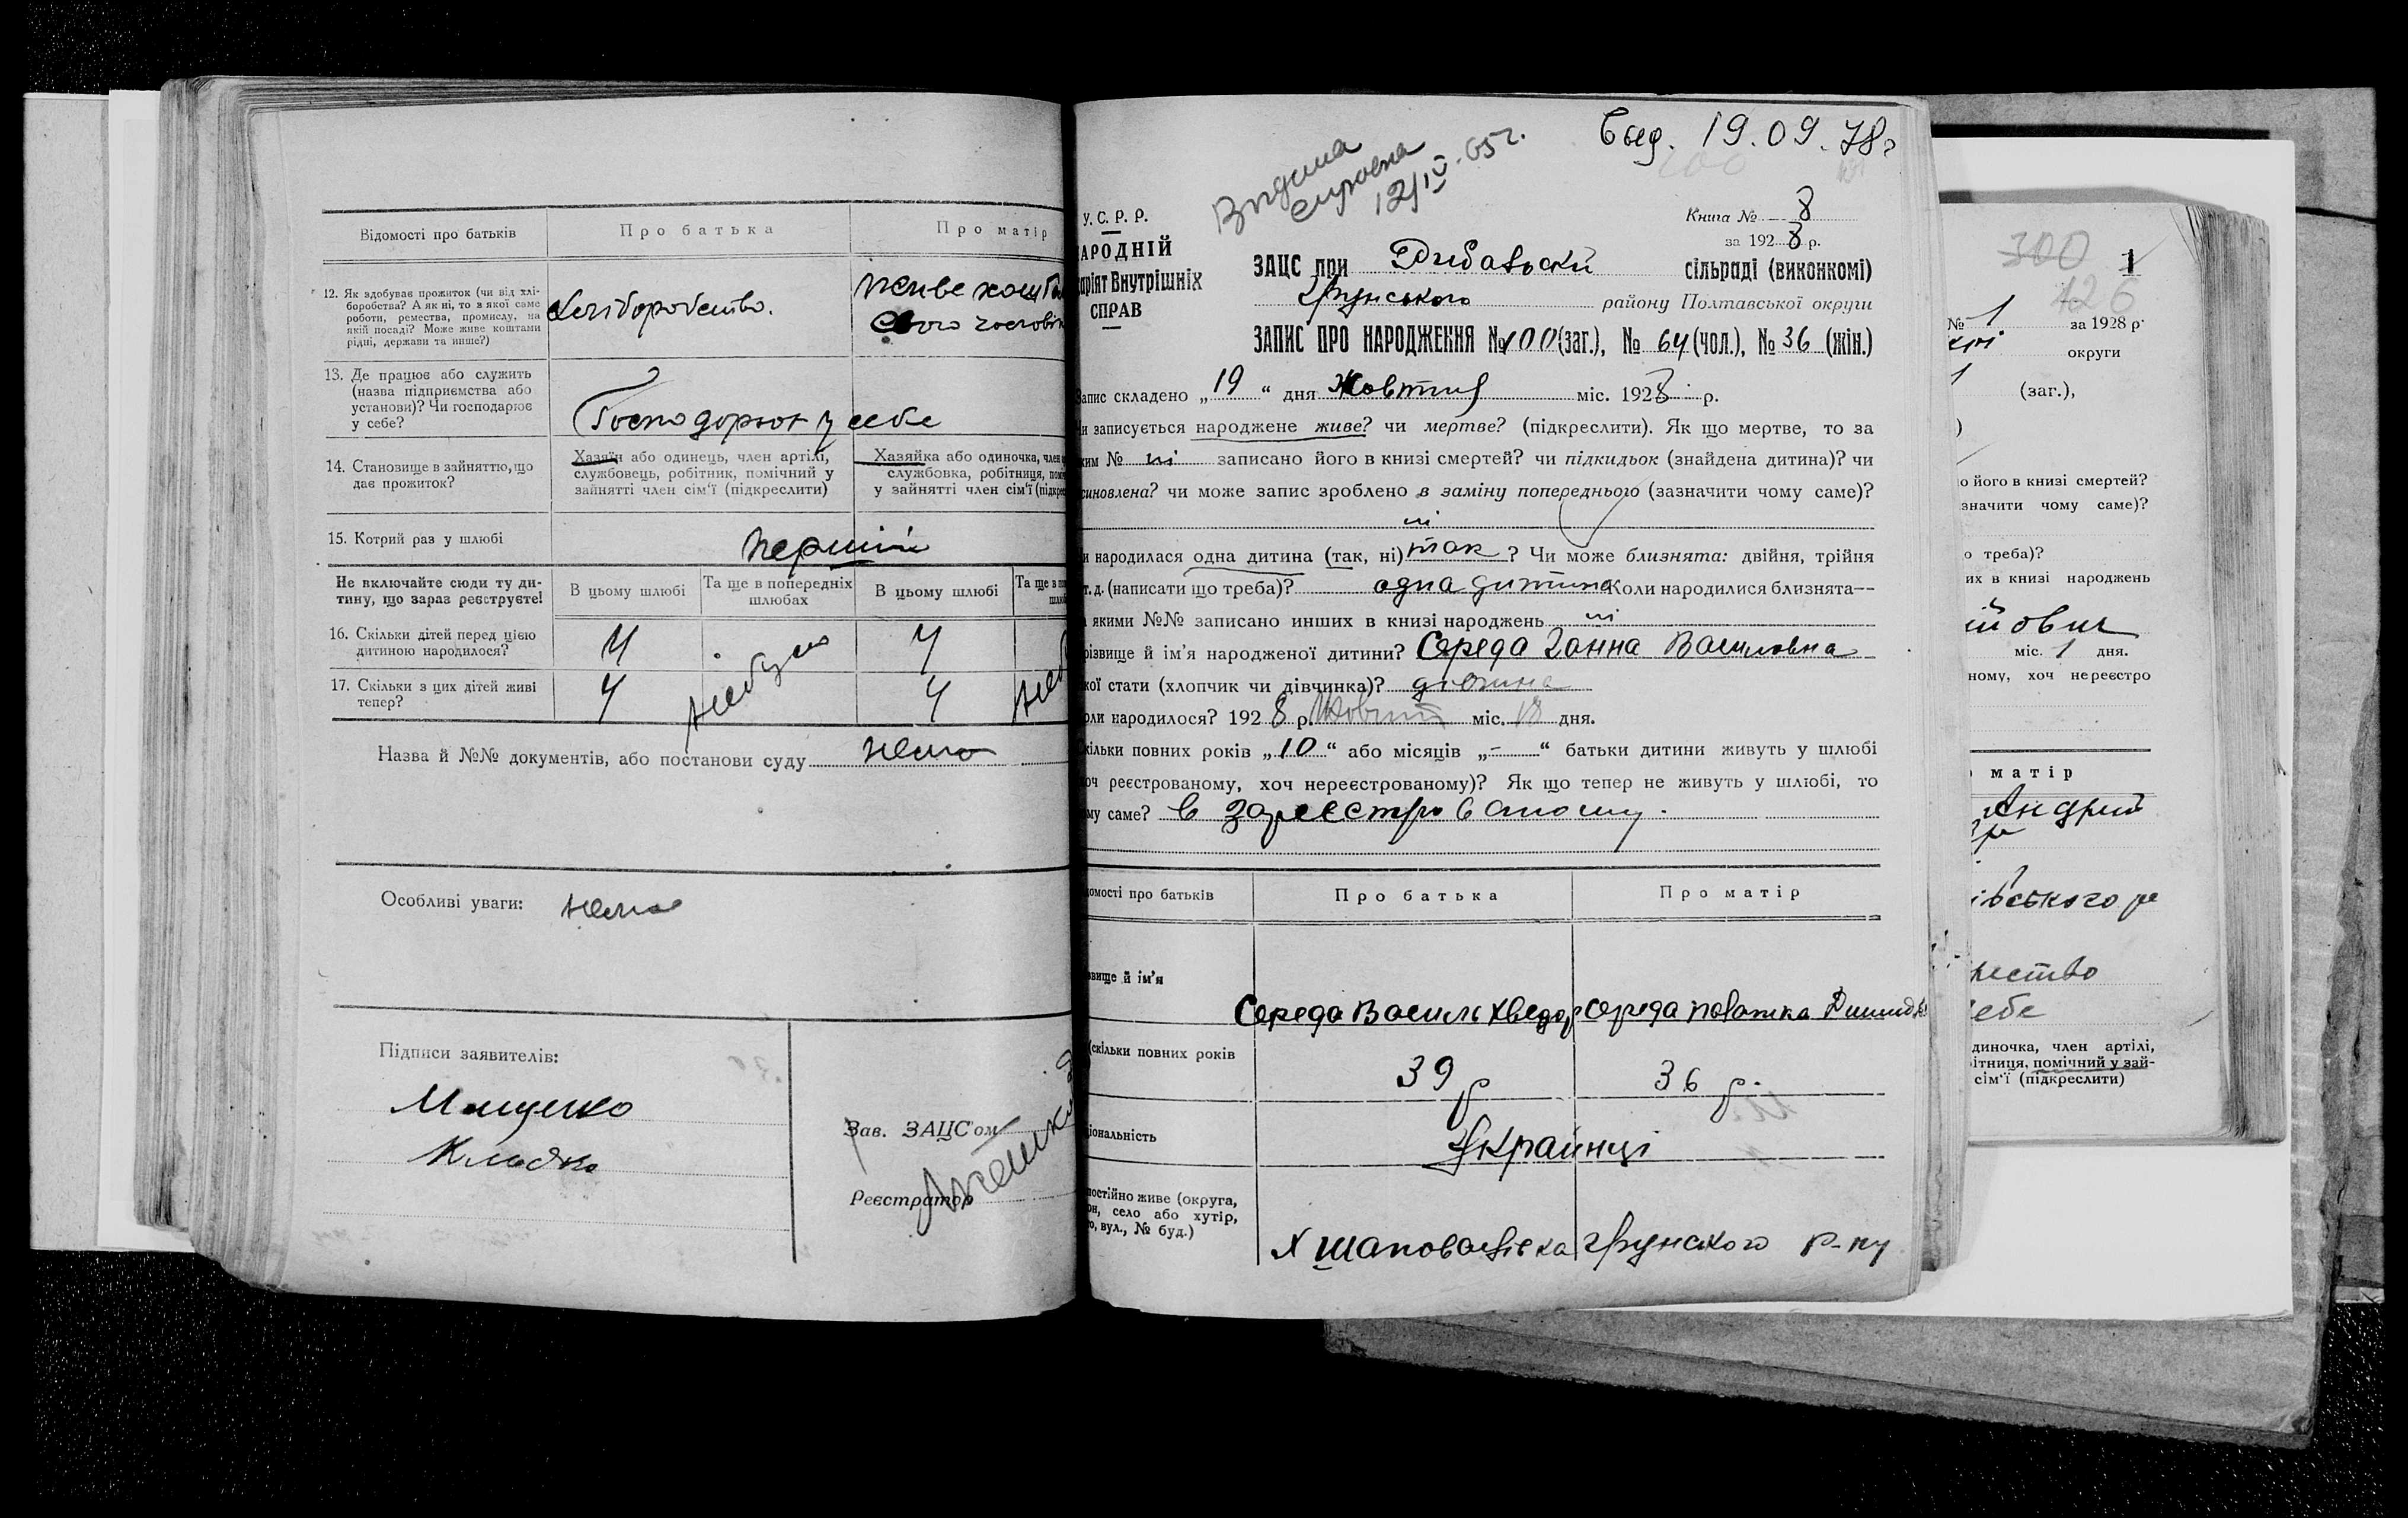 Відомості про батьків
Про батька
Про матір
12. Як здобуває прожиток (чи від хлі-
боробства? А як ні, то з якої саме
роботи, ремества, промислу, на
якій посаді? Може живе коштами
рідні, держави та инше?)
хліборобство.
живе кошта
свого чоловік
13. Де працює або служить
(назва підприємства або
установи)? Чи господарює
у себе?
Господорют у себе
14. Становище в зайняттю, що
дає прожиток?
Хазяїн або одинець, член артілі,
службовець, робітник, помічний у
зайнятті член сім'ї (підкреслити)
Хазяйка або одиночка, член
службовка, робітниця, помі
у зайнятті член сім'ї (підкре
15. Котрий раз у шлюбі
перший
Не включайте сюди ту ди-
тину, що зараз реєструєте!
В цьому шлюбі
Та ще в попередніх
шлюбах
В цьому шлюбі
Та ще в по
шлю
16. Скільки дітей перед цією
дитиною народилося?
4
4
17. Скільки з цих дітей живі
тепер?
4
4
Назва й №№ документів, або постанови суду нема
Особливі уваги: нема
Підписи заявителів:
Зав. ЗАЦС'ом
Реєстратор
Выд. 19.09.78г
12/IV.65г.
У. С. Р. Р.
АРОДНІЙ
аріят Внутрішніх
СПРАВ
Книга № 8
за 1928 р.
ЗАЦС при сільраді (виконкомі)
Грунського району Полтавської округи
ЗАПИС ПРО НАРОДЖЕННЯ № 100 (заг.), № 64 (чол.), № 36 (жін.)
Запис складено „19“ дня Жовтня міс. 1928 р.
и записується народжене живе? чи мертве? (підкреслити). Як що мертве, то за
ким № ні записано його в книзі смертей? чи підкидьок (знайдена дитина)? чи
синовлена? чи може запис зроблено в заміну попереднього (зазначити чому саме)?
ні
и народилася одна дитина (так, ні) так ? Чи може близнята: двійня, трійня
т. д. (написати що треба)? одна дитина Коли народилися близнята—
якими №№ записано инших в книзі народжень ні
різвище й ім'я народженої дитини? Середа Ганна Василовна
кої стати (хлопчик чи дівчинка)?
оли народилося? 1928 р. Жовтня міс. 18 дня.
кільки повних років „10“ або місяців „-“ батьки дитини живуть у шлюбі
оч реєстрованому, хоч нереєстрованому)? Як що тепер не живуть у шлюбі, то
му саме? в зареєстрованому.
домості про батьків
Про батька
Про матір
звище й ім'я
Середа Василь Хведор
Середа
(скільки повних років
39 р
36 р.
ціональність
Українці
постійно живе (округа,
он, село або хутір,
о, вул., № буд.)
х Шаповалівка Грунского р-ну
300
1
126
№ 1 за 1928 р.
округи
1 (заг.),
)
о його в книзі смертей?
значити чому саме)?
о треба)?
их в книзі народжень
йович
міс. 1 дня.
ному, хоч нереєстро
матір
Андрий
івського ра
себе
диночка, член артілі,
ітниця, помічний у зай-
сім'ї (підкреслити)